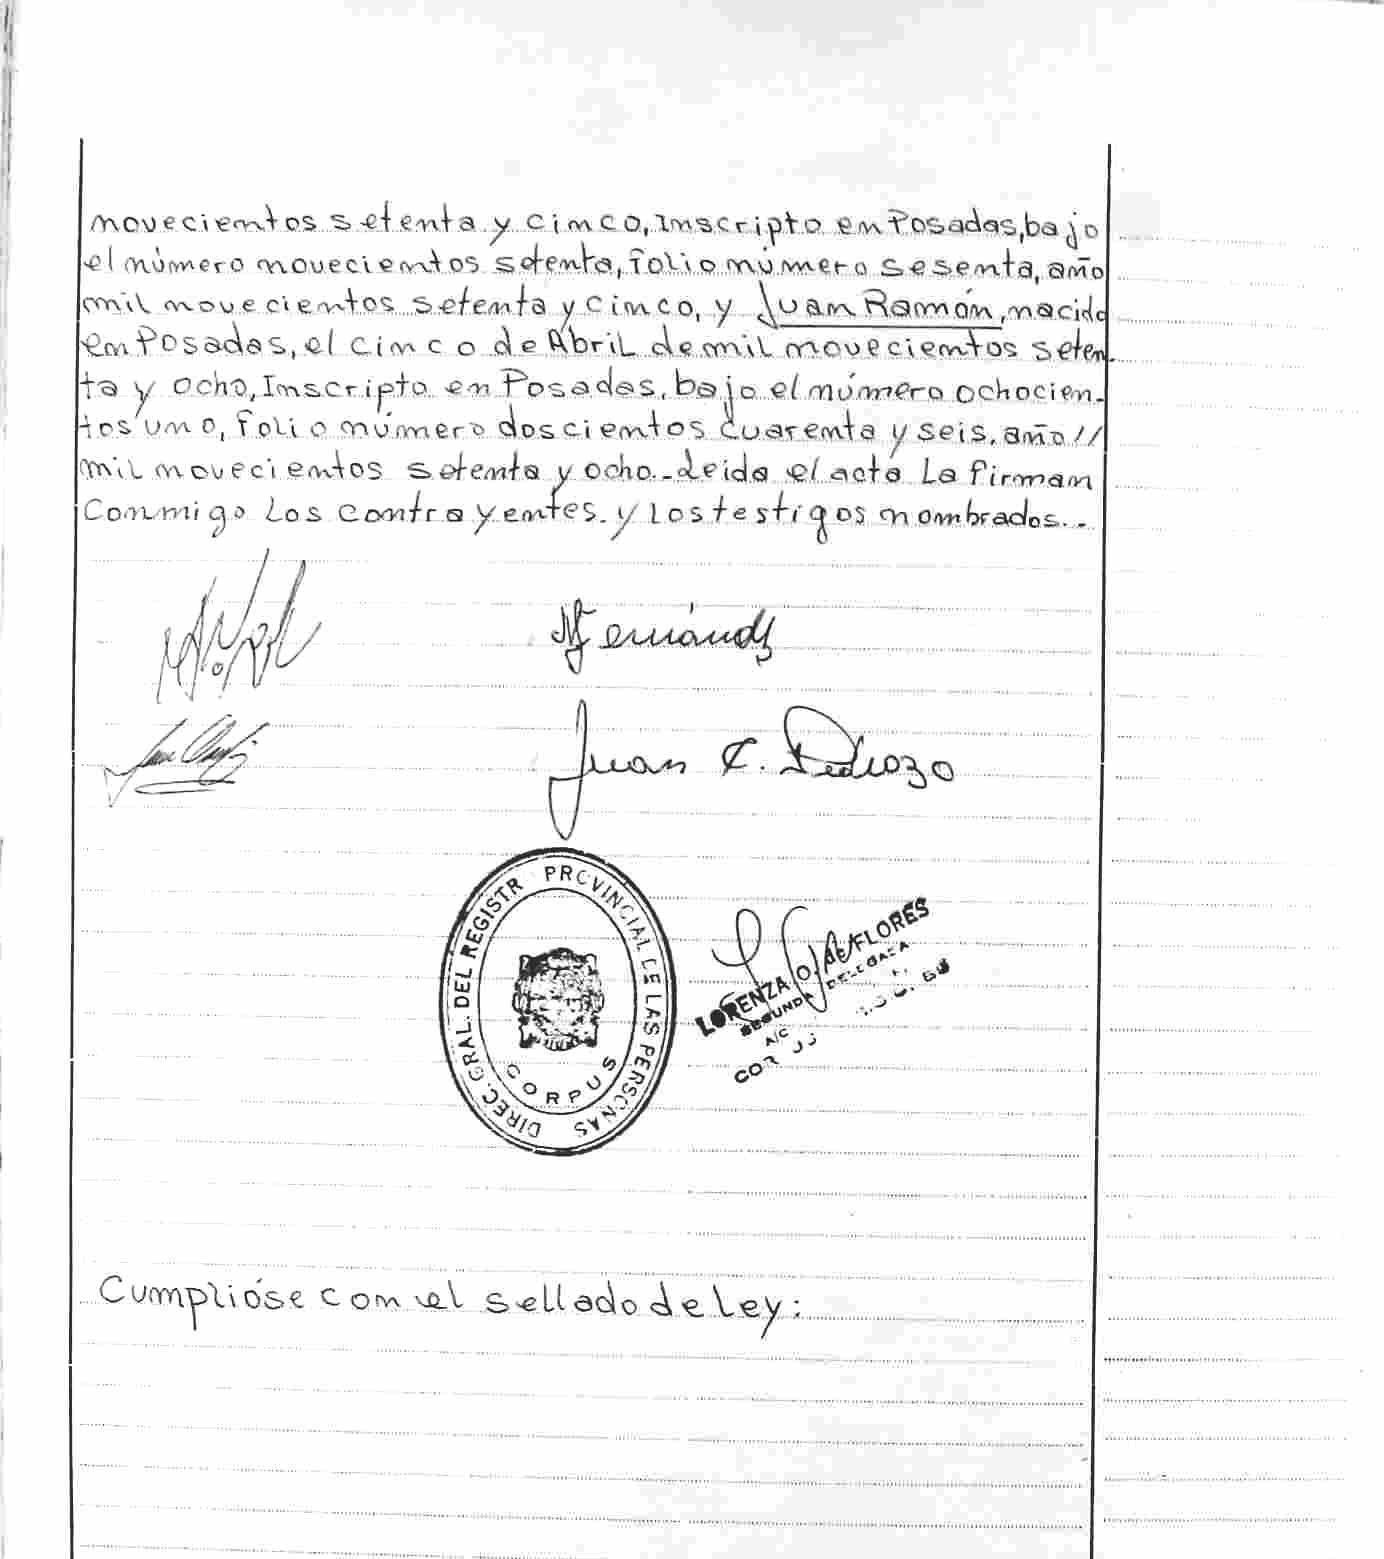 novecientos setenta y cinco, Inscripto en Posadas, bajo
el número novecientos setenta, folio número sesenta, año
mil novecientos setenta y cinco, y Juan Ramón, nacido
en Posadas, el cinco de Abril de mil novecientos seten-
ta y ocho, Inscripto en Posadas, bajo el número ochocien-
tos uno, folio número doscientos cuarenta y seis, año //
mil novecientos setenta y ocho.- Leida el acta La firman
Conmigo Los contrayentes. y los testigos nombrados..-
Juan C. Pedrozo
DIREC. GRAL. DEL REGISTR PROVINCIAL DE LAS PERSONAS
CORPUS
LORENZA O. de FLORES
SEGUNDA DELEGADA
A/C
Cumplióse con el sellado de Ley: